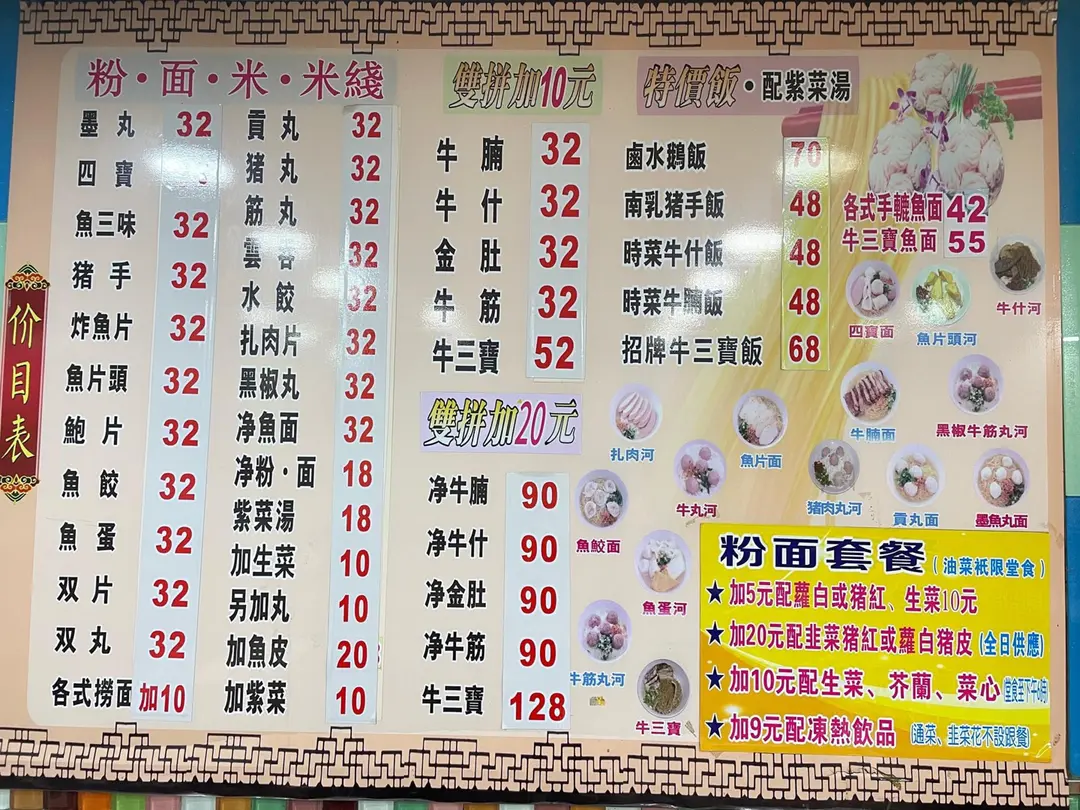 价目表
粉·面·米·米綫
墨丸 32
四寶
魚三味 32
猪手 32
炸魚片 32
魚片頭 32
鮑片 32
魚餃 32
魚蛋 32
双片 32
双丸 32
各式撈面 加10
貢丸 32
猪丸 32
筋丸 32
雲吞 32
水餃 32
扎肉片 32
黑椒丸 32
净魚面 32
净粉·面 18
紫菜湯 18
加生菜 10
另加丸 10
加魚皮 20
加紫菜 10
雙拼加10元
牛腩 32
牛什 32
金肚 32
牛筋 32
牛三寶 52
雙拼加20元
净牛腩 90
净牛什 90
净金肚 90
净牛筋 90
牛三寶 128
特價飯·配紫菜湯
鹵水鵝飯 70
南乳猪手飯 48
時菜牛什飯 48
時菜牛腩飯 48
招牌牛三寶飯 68
各式手轆魚面 42
牛三寶魚面 55
牛什河
四寶面
魚片頭河
牛腩面
黑椒牛筋丸河
扎肉河
魚片面
牛丸河
猪肉丸河
貢丸面
墨魚丸面
魚餃面
魚蛋河
牛筋丸河
牛三寶
粉面套餐（油菜衹限堂食）
★加5元配蘿白或猪紅、生菜10元
★加20元配韭菜猪紅或蘿白猪皮（全日供應）
★加10元配生菜、芥蘭、菜心（堂食至下午6時）
★加9元配凍熱飲品（通菜、韭菜花不設跟餐）